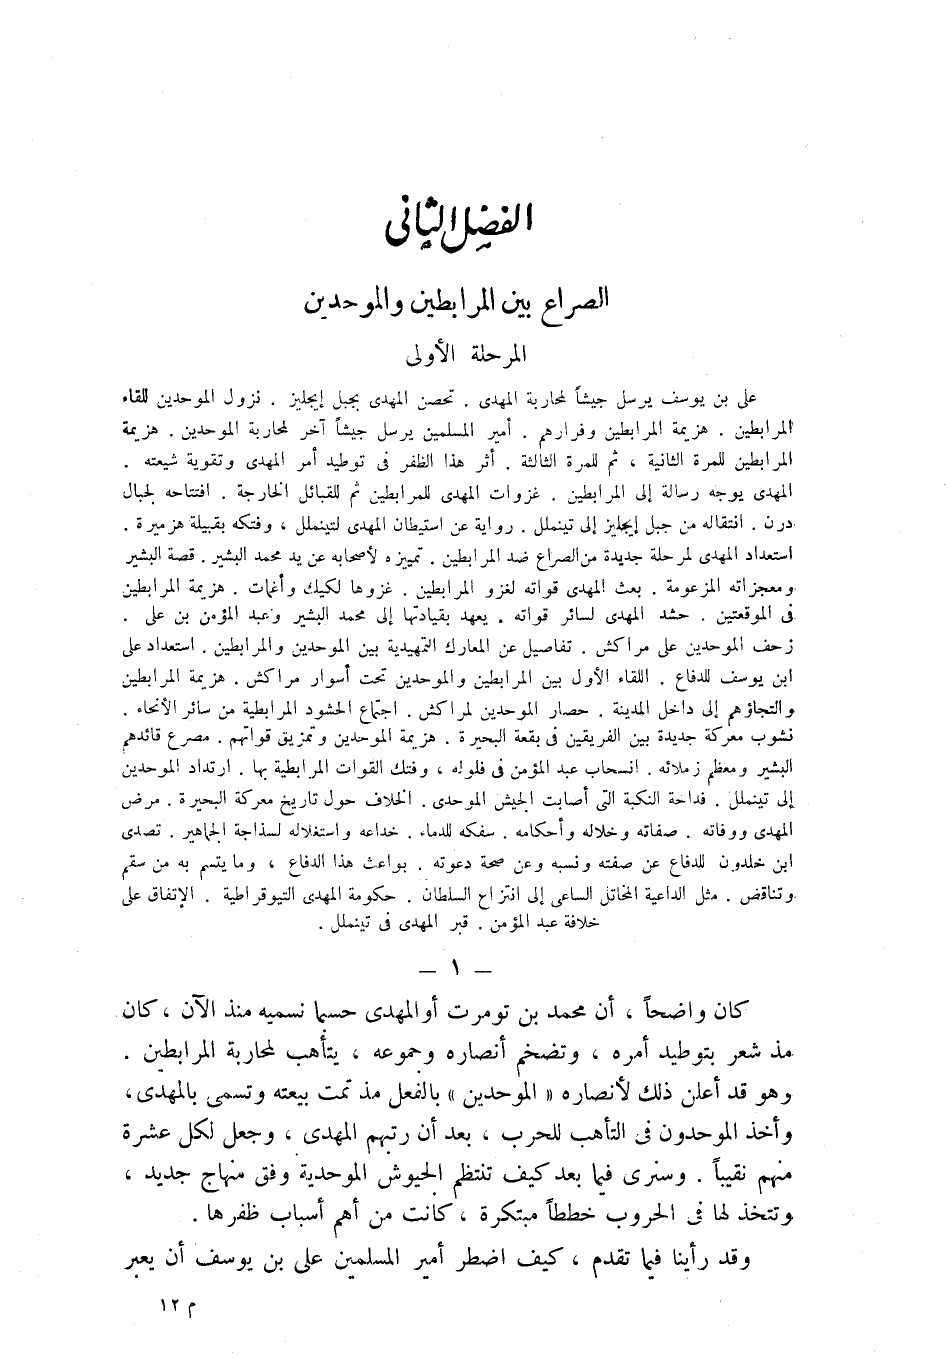 الفصل الثانى
الصراع بين المرابطين والموحدين
المرحلة الأولى
على بن يوسف يرسل جيشاً لمحاربة المهدى . تحصن المهدى بجبل إيجليز . نزول الموحدين للقاء
المرابطين . هزيمة المرابطين وفرارهم . أمير المسلمين يرسل جيشاً آخر لمحاربة الموحدين . هزيمة
المرابطين للمرة الثانية ، ثم للمرة الثالثة . أثر هذا الظفر فى توطيد أمر المهدى وتقوية شيعته .
المهدى يوجه رسالة إلى المرابطين . غزوات المهدى للمرابطين ثم للقبائل الخارجة . افتتاحه لجبال
درن . انتقاله من جبل إيجليز إلى تينملل . رواية عن استيطان المهدى لتينملل ، وفتكه بقبيلة هزميرة .
استعداد المهدى لمرحلة جديدة من الصراع ضد المرابطين . تمييزه لأصحابه عن يد محمد البشير . قصة البشير
ومعجزاته المزعومة . بعث المهدى قواته لغزو المرابطين . غزوها لكيك وأغمات . هزيمة المرابطين
فى الموقعتين . حشد المهدى لسائر قواته . يعهد بقيادتها إلى محمد البشير وعبد المؤمن بن على .
زحف الموحدين على مراكش . تفاصيل عن المعارك التمهيدية بين الموحدين والمرابطين . استعداد على
ابن يوسف للدفاع . اللقاء الأول بين المرابطين والموحدين تحت أسوار مراكش . هزيمة المرابطين
والتجاؤهم إلى داخل المدينة . حصار الموحدين لمراكش . اجتماع الحشود المرابطية من سائر الأنحاء .
نشوب معركة جديدة بين الفريقين فى بقعة البحيرة . هزيمة الموحدين وتمزيق قواتهم . مصرع قائدهم
البشير ومعظم زملائه . انسحاب عبد المؤمن فى فلوله ، وفتك القوات المرابطية بها . ارتداد الموحدين
إلى تينملل . فداحة النكبة التى أصابت الجيش الموحدى . الخلاف حول تاريخ معركة البحيرة . مرض
المهدى ووفاته . صفاته وخلاله وأحكامه . سفكه للدماء . خداعه واستغلاله لسذاجة الجماهير . تصدى
ابن خلدون للدفاع عن صفته ونسبه وعن صحة دعوته . بواعث هذا الدفاع ، وما يتسم به من سقم
وتناقض . مثل الداعية المخاتل الساعى إلى انتزاع السلطان . حكومة المهدى التيوقراطية . الإتفاق على
خلافة عبد المؤمن . قبر المهدى فى تينملل .
— ١ —
كان واضحاً ، أن محمد بن تومرت أو المهدى حسبما نسميه منذ الآن ، كان
مذ شعر بتوطيد أمره ، وتضخم أنصاره وجموعه ، يتأهب لمحاربة المرابطين .
وهو قد أعلن ذلك لأنصاره « الموحدين » بالفعل مذ تمت بيعته وتسمى بالمهدى ،
وأخذ الموحدون فى التأهب للحرب ، بعد أن رتبهم المهدى ، وجعل لكل عشرة
منهم نقيباً . وسنرى فيما بعد كيف تنتظم الجيوش الموحدية وفق منهاج جديد ،
وتتخذ لها فى الحروب خططاً مبتكرة ، كانت من أهم أسباب ظفرها .
وقد رأينا فيما تقدم ، كيف اضطر أمير المسلمين على بن يوسف أن يعبر
م ١٢